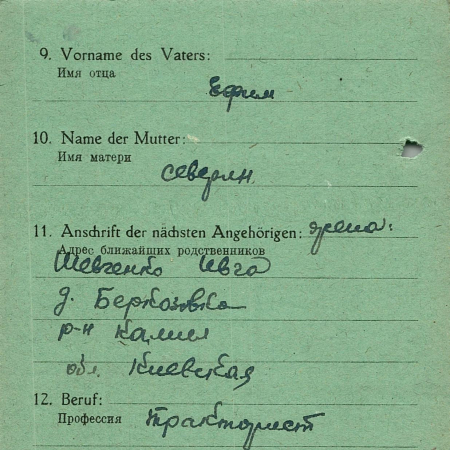 9. Vorname des Vaters:
Имя отца
Ефим
10. Name der Mutter:
Имя матери
Северин
11. Anschrift der nächsten Angehörigen: жена:
Адрес ближайших родственников
Шевченко Ивга
д. Беркозовка
р-н
обл. Киевская
12. Beruf:
Профессия тракторист